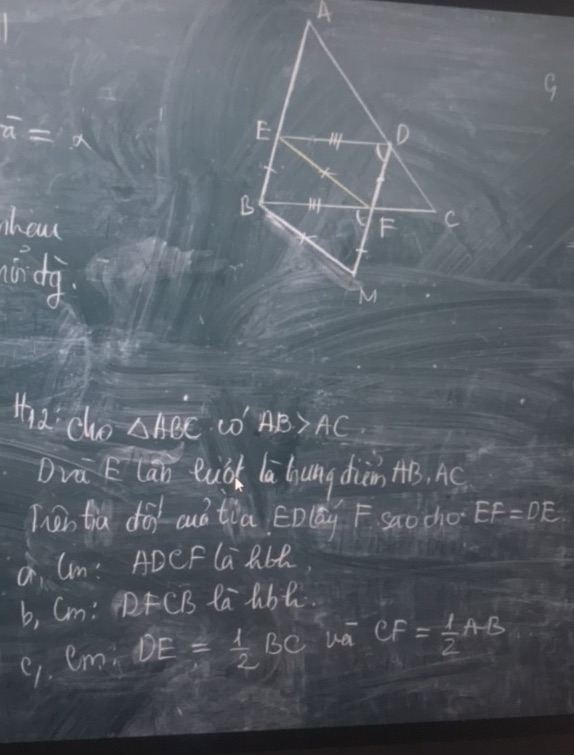 A
E
D
B
F
C
M
G
nhau
H12: cho △ABC có AB > AC
D và E lần lượt là trung điểm AB, AC
Trên tia đối của tia ED lấy F sao cho EF = DE
a, Cm: ADCF là hbh.
b, Cm: DFCB là hbh.
c, Cm: DE = 1/2 BC và CF = 1/2 AB